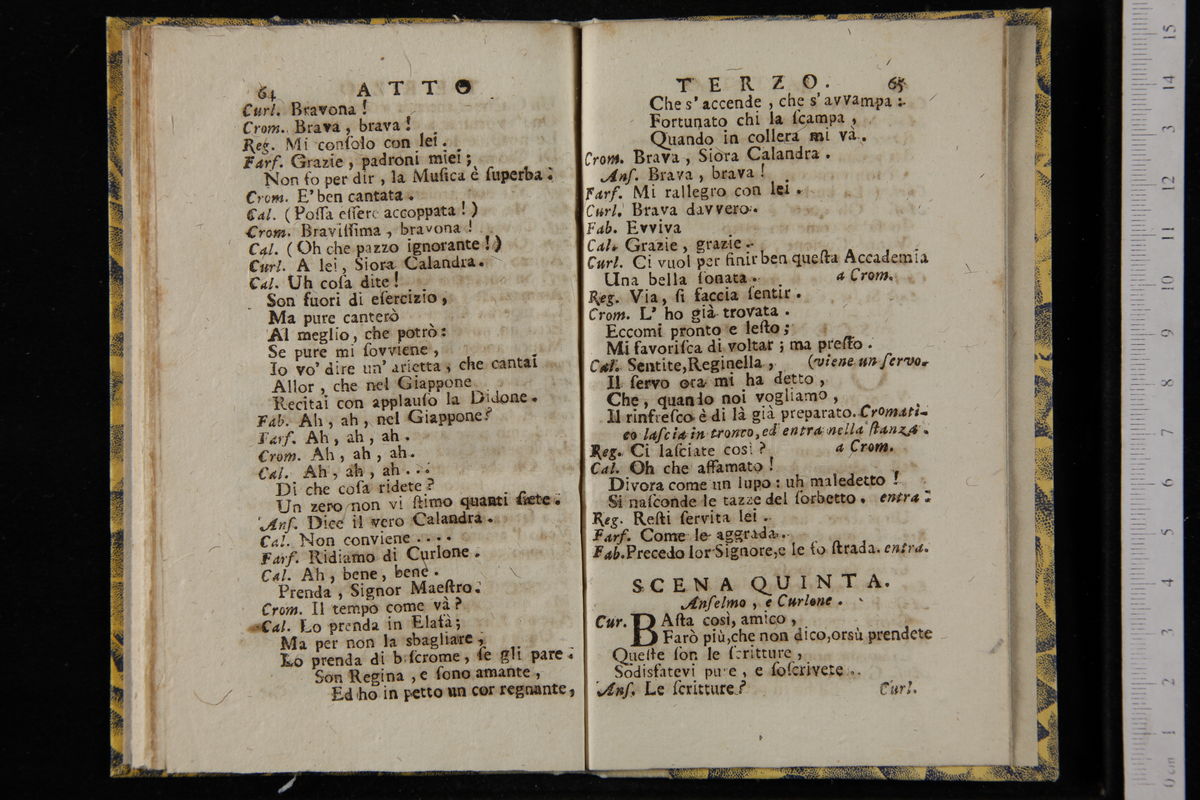 64 ATTO
Curl. Bravona!
Crom. Brava, brava!
Reg. Mi conſolo con lei.
Farſ. Grazie, padroni miei;
Non ſo per dir, la Muſica è ſuperba.
Crom. E' ben cantata.
Cal. (Poſſa eſſere accoppata!)
Crom. Braviſſima, bravona!
Cal. (Oh che pazzo ignorante!)
Curl. A lei, Siora Calandra.
Cal. Uh coſa dite!
Son fuori di eſercizio,
Ma pure canterò
Al meglio, che potrò:
Se pure mi ſovviene,
Io vo' dire un' arietta, che cantai
Allor, che nel Giappone
Recitai con applauſo la Didone.
Fab. Ah, ah, nel Giappone?
Farſ. Ah, ah, ah.
Crom. Ah, ah, ah.
Cal. Ah, ah, ah...
Di che coſa ridete?
Un zero non vi ſtimo quanti ſiete.
Anſ. Dice il vero Calandra.
Cal. Non conviene....
Farſ. Ridiamo di Curlone.
Cal. Ah, bene, bene.
Prenda, Signor Maeſtro.
Crom. Il tempo come và?
Cal. Lo prenda in Elafà;
Ma per non la sbagliare,
Lo prenda di biſcrome, ſe gli pare.
Son Regina, e ſono amante,
Ed ho in petto un cor regnante,
TERZO. 65
Che s'accende, che s'avvampa:
Fortunato chi la ſcampa,
Quando in collera mi va.
Crom. Brava, Siora Calandra.
Anſ. Brava, brava!
Farſ. Mi rallegro con lei.
Curl. Brava davvero.
Fab. Evviva
Cal. Grazie, grazie.
Curl. Ci vuol per finir ben queſta Accademia
Una bella ſonata. a Crom.
Reg. Via, ſi faccia ſentir.
Crom. L' ho già trovata.
Eccomi pronto e leſto;
Mi favoriſca di voltar; ma preſto.
Cal. Sentite, Reginella, (viene un ſervo.
Il ſervo ora mi ha detto,
Che, quando noi vogliamo,
Il rinfreſco è di là già preparato. Cromati-
co laſcia in tronco, ed entra nella ſtanza.
Reg. Ci laſciate così? a Crom.
Cal. Oh che affamato!
Divora come un lupo: uh maledetto!
Si naſconde le tazze del ſorbetto. entra.
Reg. Reſti ſervita lei.
Farſ. Come le aggrada.
Fab. Precedo lor Signore, e le fo ſtrada. entra.
SCENA QUINTA.
Anſelmo, e Curlone.
Cur. BAſta così, amico,
Farò più, che non dico, orsù prendete
Queſte ſon le ſcritture,
Sodisfatevi pure, e ſoſcrivete.
Anſ. Le ſcritture?
Curl.
0 cm 1 2 3 4 5 6 7 8 9 10 11 12 13 14 15